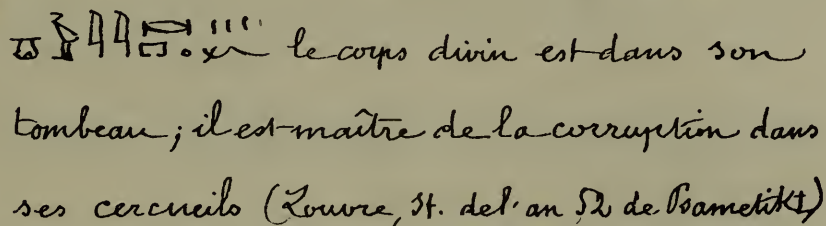 le corps divin est dans son
tombeau; il est maître de la corruption dans
ses cercueils (Louvre, St. de l'an de Psametik I)